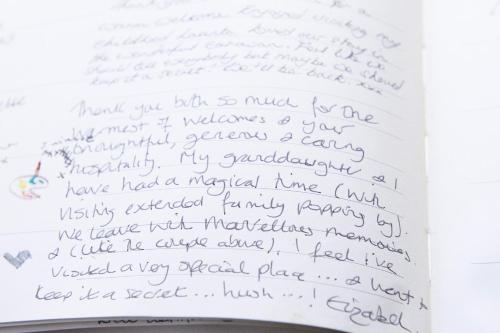 for a
warm welcome. Enjoyed visiting my
childhood haunts. Loved our stay in
the wonderful caravan. Feel like we
should tell everybody but maybe we should
keep it a secret! We'll be back. xxx
Thank you both so much for the
warmest of welcomes & your
thoughtful, generous & caring
hospitality. My granddaughter & I
have had a magical time (with
visiting extended family popping by).
We leave with marvellous memories
& (like the couple above), I feel I've
visited a very special place... & want to
keep it a secret... hush...! Elizabeth